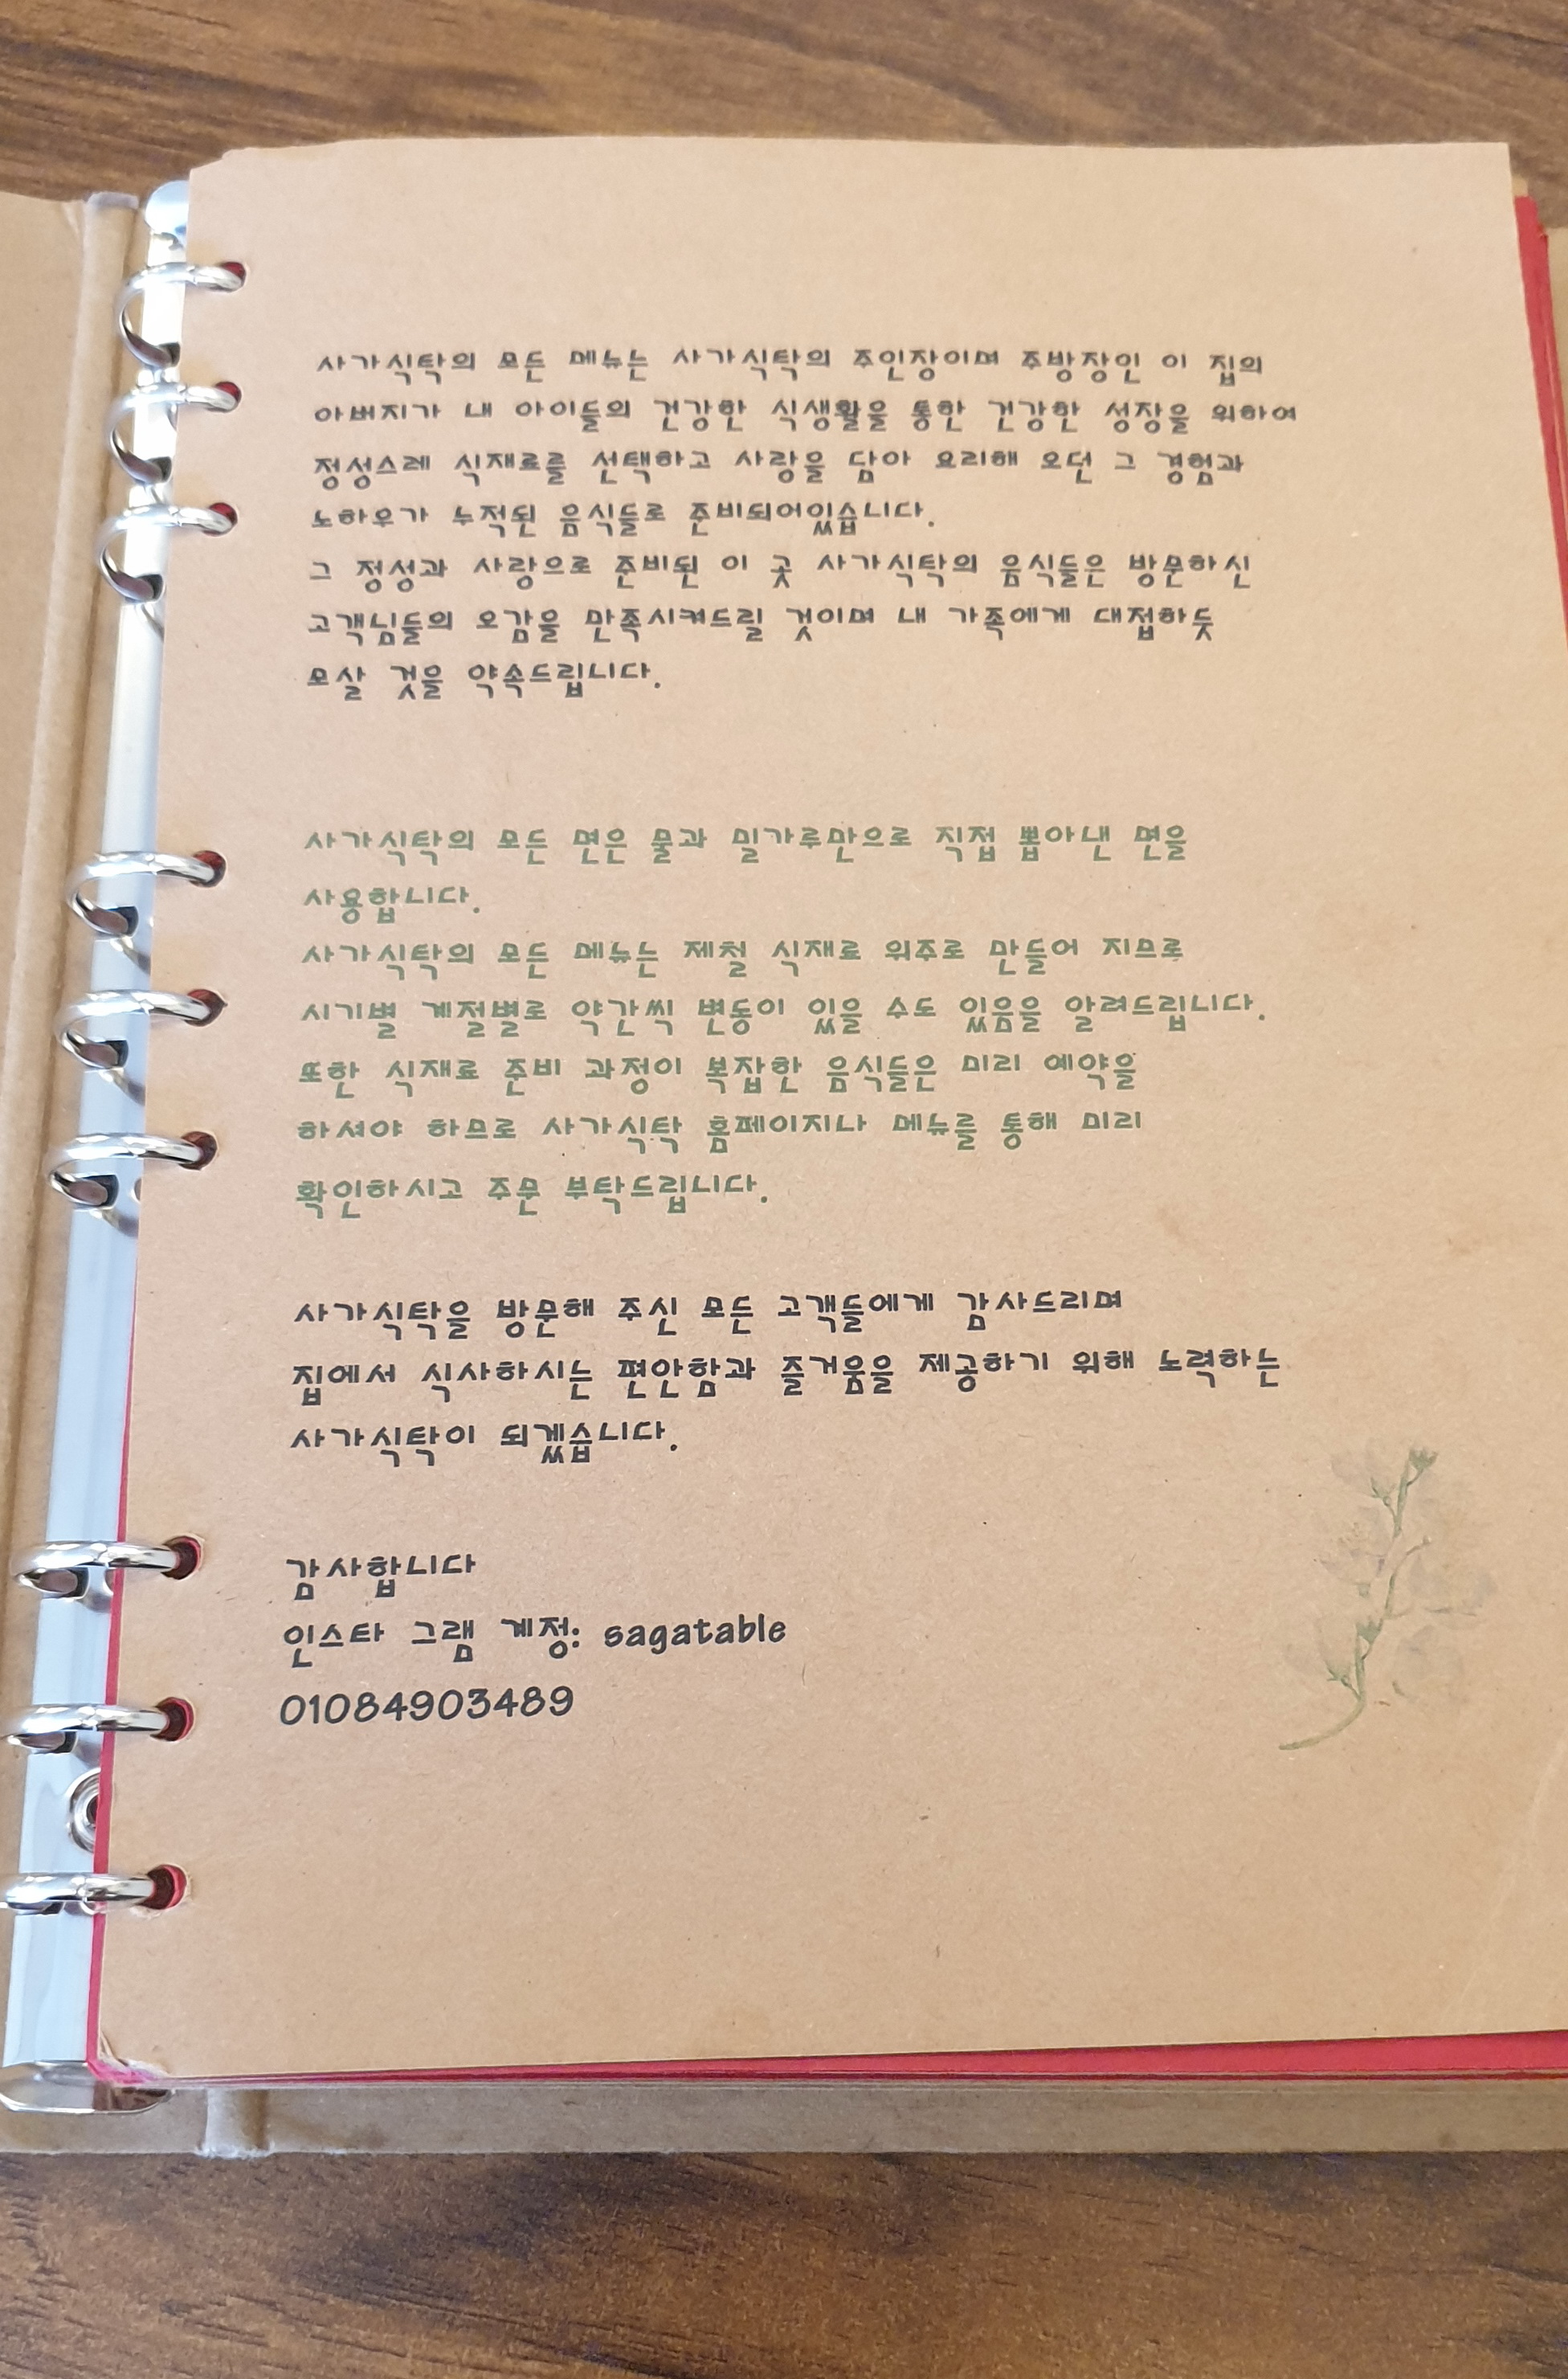 사가식탁의 모든 메뉴는 사가식탁의 주인장이며 주방장인 이 집의
아버지가 내 아이들의 건강한 식생활을 통한 건강한 성장을 위하여
정성스레 식재료를 선택하고 사랑을 담아 요리해 오던 그 경험과
노하우가 누적된 음식들로 준비되어있습니다.
그 정성과 사랑으로 준비된 이 곳 사가식탁의 음식들은 방문하신
고객님들의 오감을 만족시켜드릴 것이며 내 가족에게 대접하듯
모살 것을 약속드립니다.
사가식탁의 모든 면은 물과 밀가루만으로 직접 뽑아낸 면을
사용합니다.
사가식탁의 모든 메뉴는 제철 식재료 위주로 만들어 지므로
시기별 계절별로 약간씩 변동이 있을 수도 있음을 알려드립니다.
또한 식재료 준비 과정이 복잡한 음식들은 미리 예약을
하셔야 하므로 사가식탁 홈페이지나 메뉴를 통해 미리
확인하시고 주문 부탁드립니다.
사가식탁을 방문해 주신 모든 고객들에게 감사드리며
집에서 식사하시는 편안함과 즐거움을 제공하기 위해 노력하는
사가식탁이 되겠습니다.
감사합니다
인스타 그램 계정: sagatable
01084903489